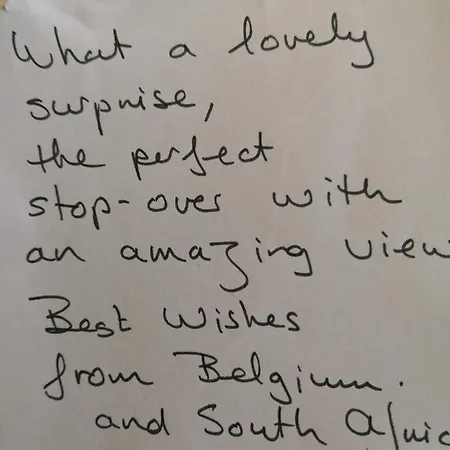 What a lovely
surprise,
the perfect
stop-over with
an amazing view
Best Wishes
from Belgium.
and South Afric